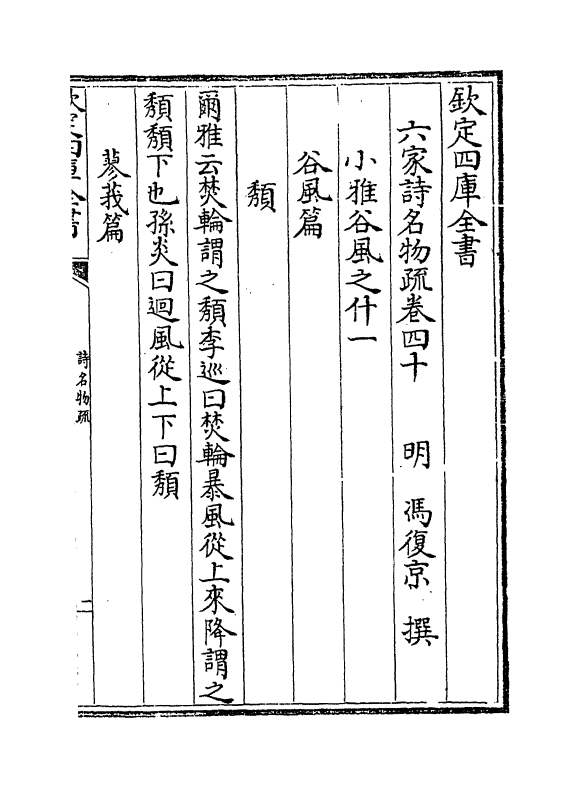 欽定四庫全書
六家詩名物疏卷四十 明 馮復京 撰
小雅谷風之什一
谷風篇
頽
爾雅云焚輪謂之頽李巡曰焚輪暴風從上來降謂之
頽頽下也孫炎曰迴風從上下曰頽
蓼莪篇
欽定四庫全書
詩名物疏
二